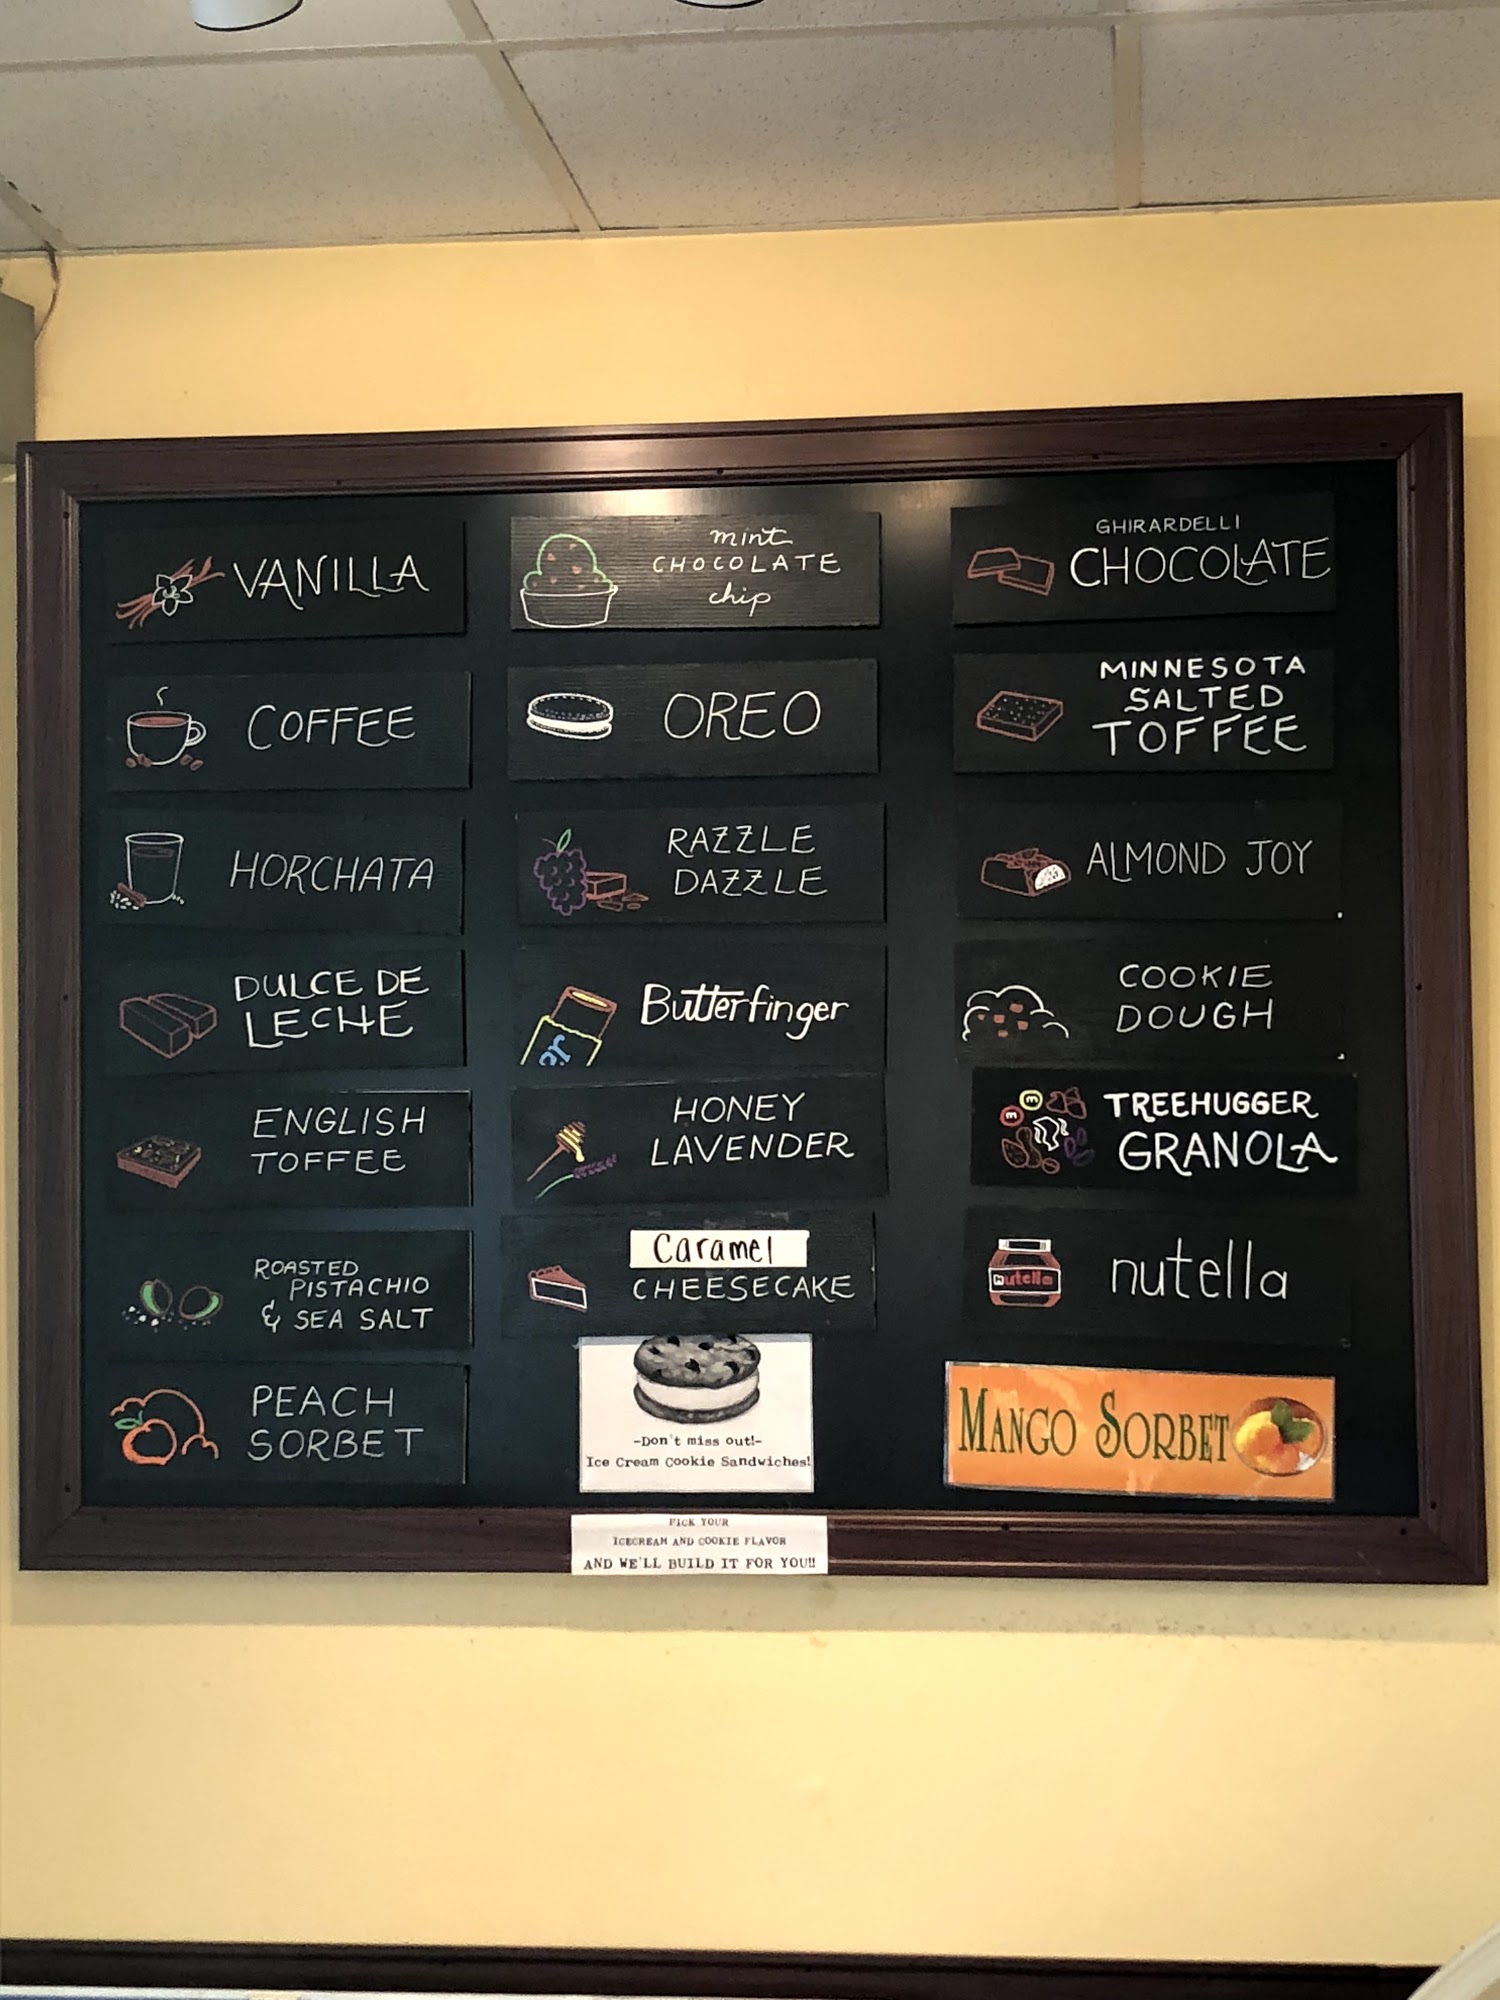 VANILLA
COFFEE
HORCHATA
DULCE DE
LECHE
ENGLISH
TOFFEE
ROASTED
PISTACHIO
& SEA SALT
PEACH
SORBET
mint
CHOCOLATE
chip
OREO
RAZZLE
DAZZLE
Butterfinger
HONEY
LAVENDER
Caramel
CHEESECAKE
-Don't miss out!-
Ice Cream Cookie Sandwiches!
PICK YOUR
ICECREAM AND COOKIE FLAVOR
AND WE'LL BUILD IT FOR YOU!!
GHIRARDELLI
CHOCOLATE
MINNESOTA
SALTED
TOFFEE
ALMOND JOY
COOKIE
DOUGH
m
m
TREEHUGGER
GRANOLA
nutella
nutella
MANGO SORBET